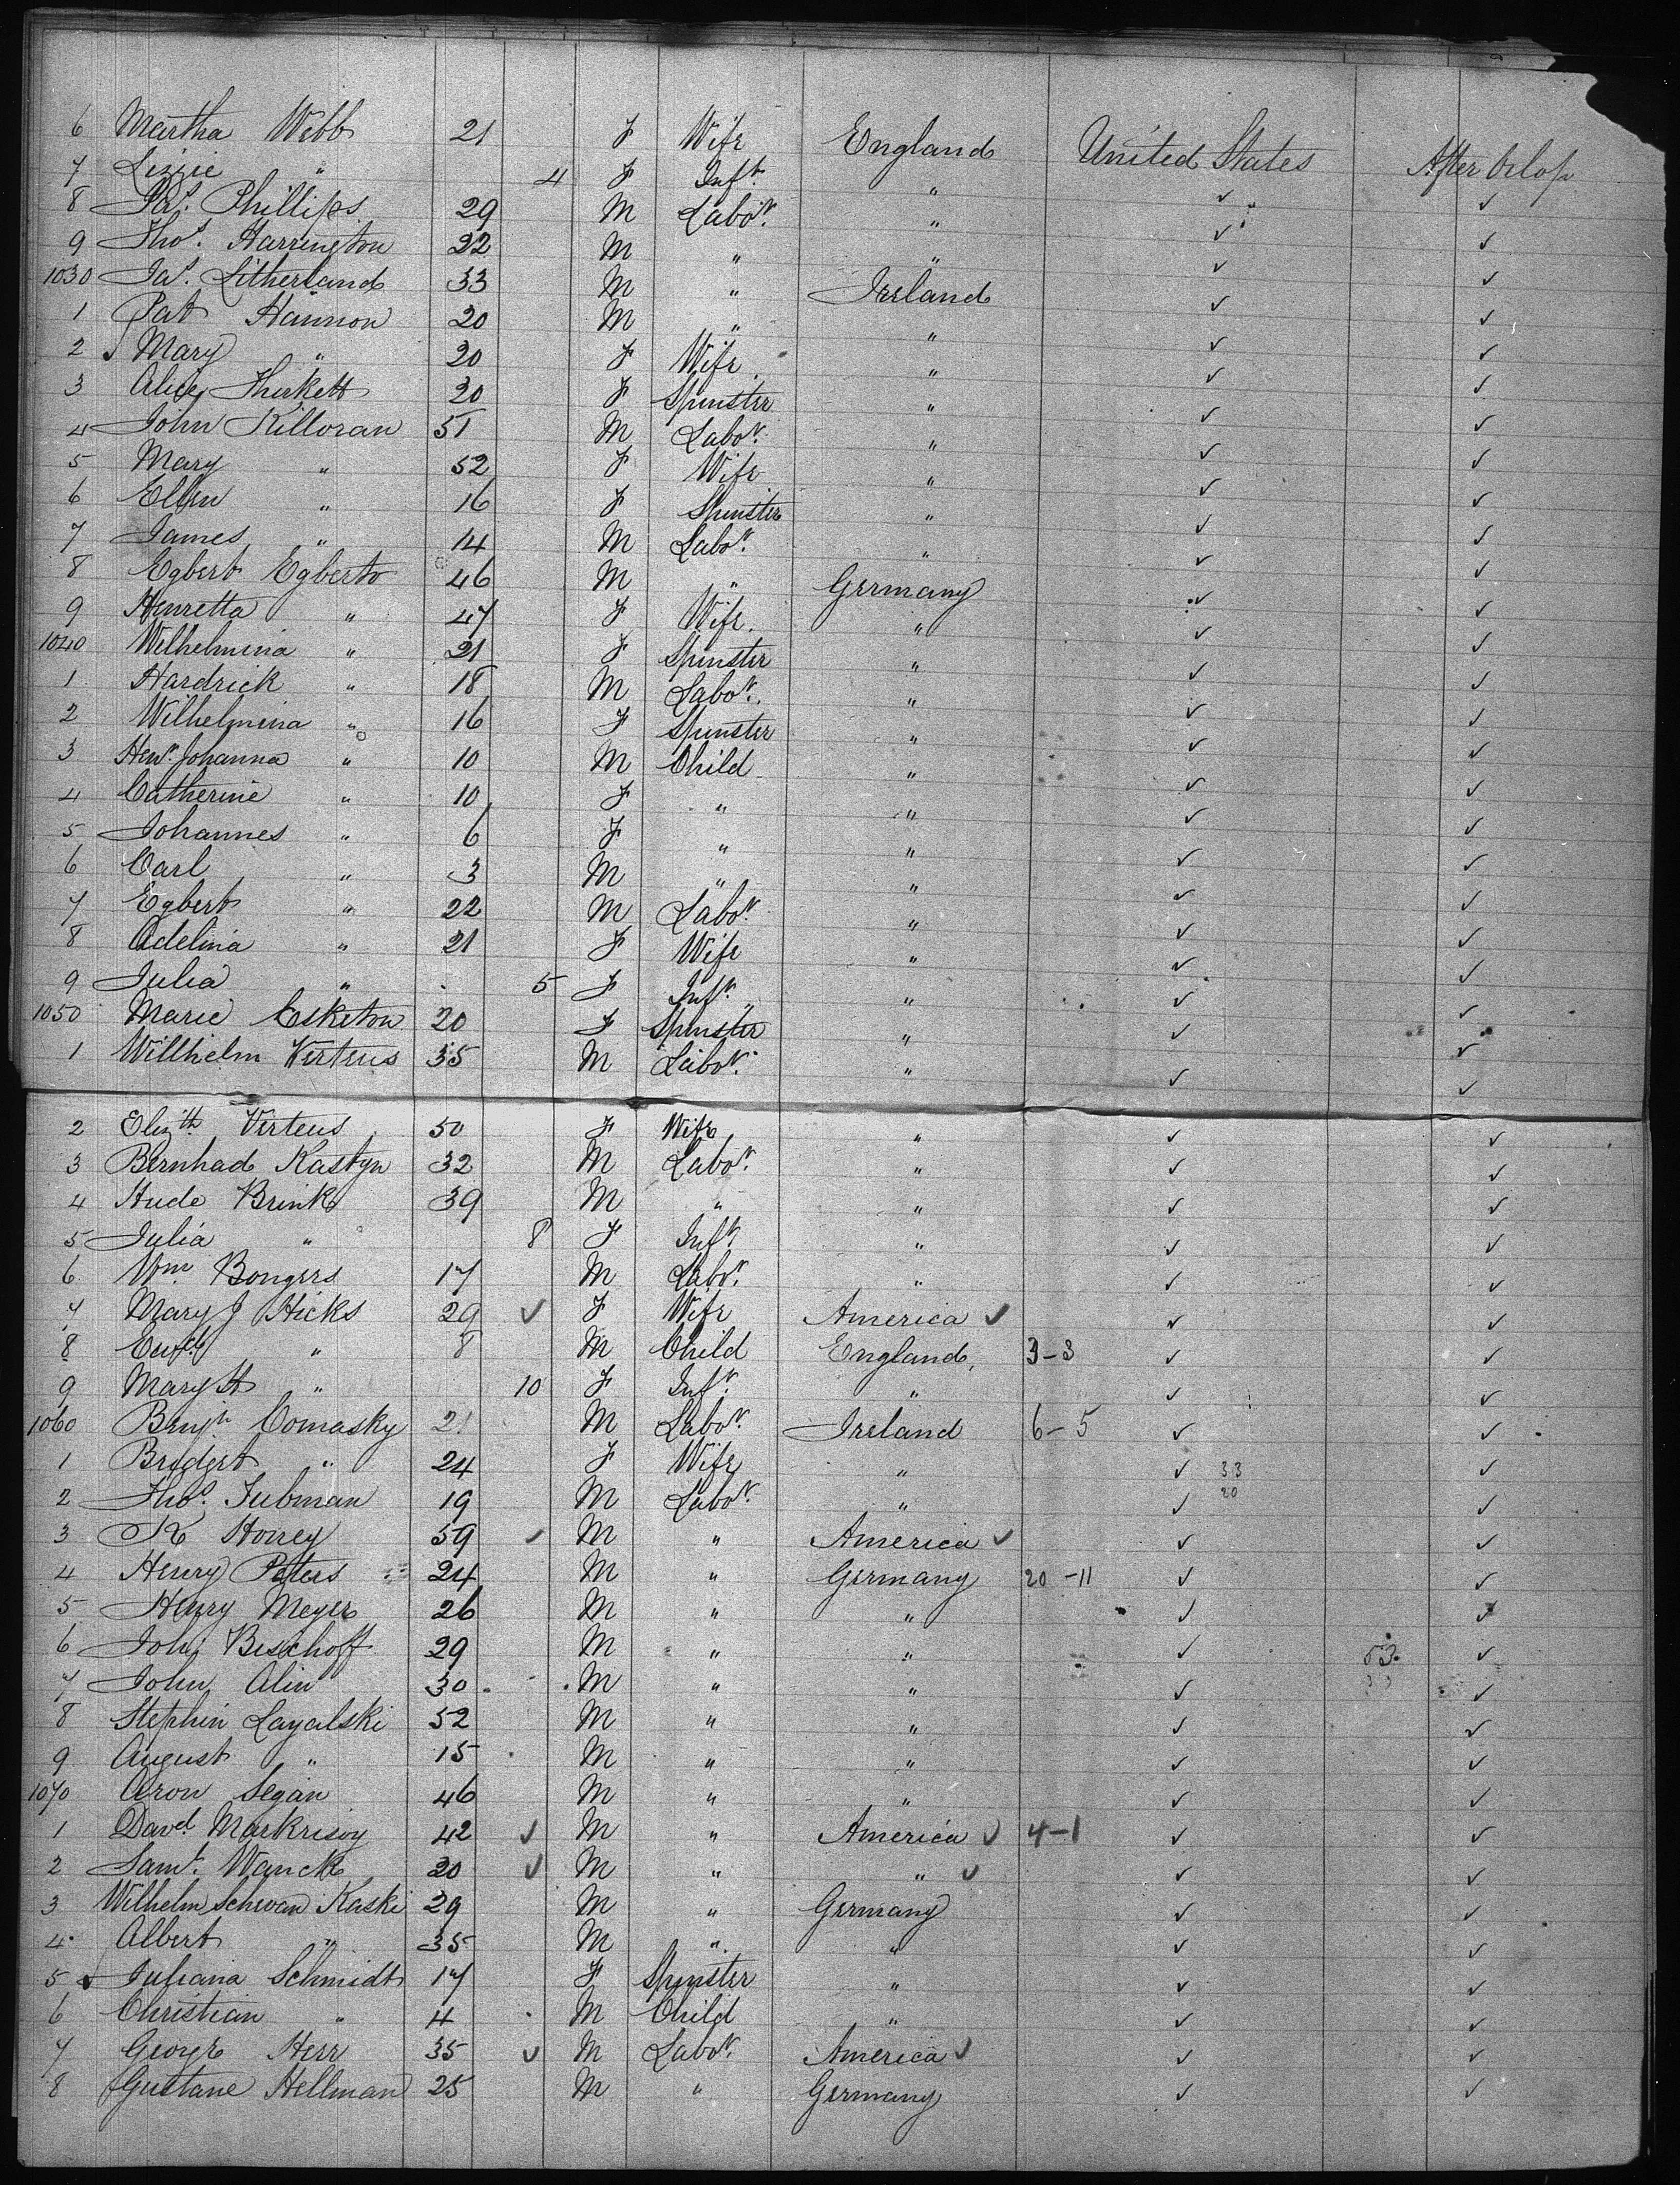 6 Martha Webb 21 F Wife England United States After Orlop
7 Lizzie " 4 F Inft. " ✓ ✓
8 Jas. Phillips 29 M Labor. " ✓ ✓
9 Thos. Harrington 22 M " " ✓ ✓
1030 Jas. Litherland 33 M " Ireland ✓ ✓
1 Pat Hannon 20 M " " ✓ ✓
2 Mary " 20 F Wife " ✓ ✓
3 Alice 20 F Spinster " ✓ ✓
4 John Killoran 51 M Labor. " ✓ ✓
5 Mary " 52 F Wife " ✓ ✓
6 Ellen " 16 F Spinster " ✓ ✓
7 James " 14 M Labor. " ✓ ✓
8 Egbert Egberto 46 M " Germany ✓ ✓
9 Henretta " 47 F Wife. " ✓ ✓
1040 Wilhelmina " 21 F Spinster " ✓ ✓
1 Hardrick " 18 M Labor. " ✓ ✓
2 Wilhelmina " 16 F Spinster " ✓ ✓
3 Henr. Johanna " 10 M Child " ✓ ✓
4 Catherine " 10 F " " ✓ ✓
5 Johannes " 6 F " " ✓ ✓
6 Carl " 3 M " " ✓ ✓
7 Egbert " 22 M Labor. " ✓ ✓
8 Adelina " 21 F Wife " ✓ ✓
9 Julia " 5 F Inft. " ✓ ✓
1050 Marie Esketon 20 F Spinster " ✓ ✓
1 Willhelm Verteus 35 M Labor. " ✓ ✓
2 Elizth. Verteus 50 F Wife " ✓ ✓
3 Bernhad Kastyn 32 M Labor. " ✓ ✓
4 Hude Brink 39 M " " ✓ ✓
5 Julia " 8 F Inft. " ✓ ✓
6 Wm. Bongers 17 M Labor. " ✓ ✓
7 Mary J Hicks 29 ✓ F Wife America ✓ ✓ ✓
8 " 8 M Child England, 3-3 ✓ ✓
9 Mary H " 10 F Inft. " ✓ ✓
1060 Benjn. Comasky 21 M Labor. Ireland 6-5 ✓ ✓
1 Bridget " 24 F Wife " ✓ 33 ✓
2 Thos. Tubman 19 M Labor. " ✓ 20 ✓
3 R Horrey 59 ✓ M " America ✓ ✓ ✓
4 Henry Peters 24 M " Germany 20-11 ✓ ✓
5 Henry Meyer 26 M " " ✓ ✓
6 John Bischoff 29 M " " ✓ 53 ✓
7 John Alin 30 M " " ✓ 33 ✓
8 Stephin Layalski 52 M " " ✓ ✓
9 August " 15 M " " ✓ ✓
1070 Aron Segan 46 M " " ✓ ✓
1 Davd. Markrisoy 42 ✓ M " America ✓ 4-1 ✓ ✓
2 Saml. Wanck 20 ✓ M " " ✓ ✓ ✓
3 Wilhelm Schwan Kaski 29 M " Germany ✓ ✓
4 Albert " 35 M " " ✓ ✓
5 Juliana Schmidt 17 F Spinster " ✓ ✓
6 Christian " 4 M Child " ✓ ✓
7 George Herr 35 ✓ M Labor. America ✓ ✓ ✓
8 Gustane Hellman 25 M " Germany ✓ ✓